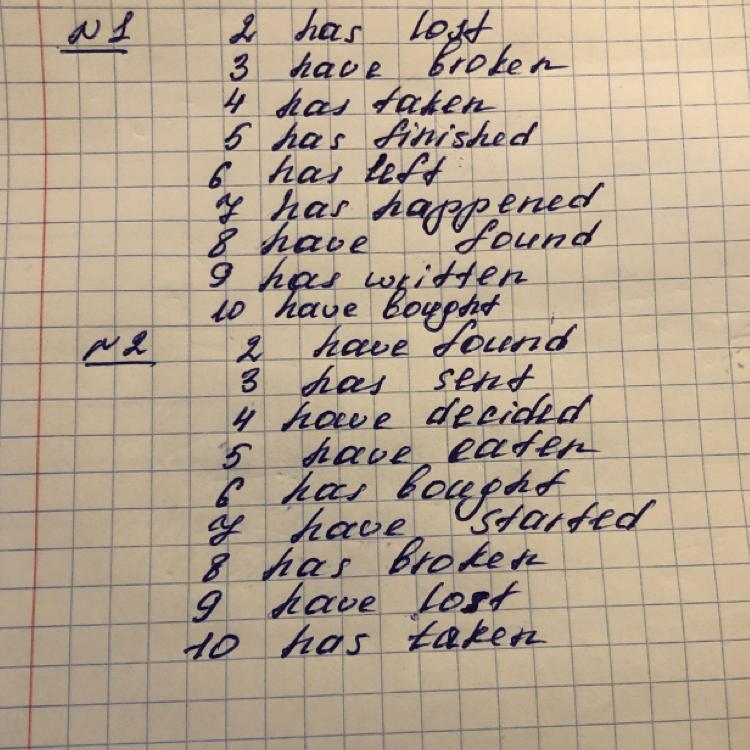 N1 2 has lost
3 have broken
4 has taken
5 has finished
6 has left
7 has happened
8 have found
9 has written
10 have bought
N2 2 have found
3 has sent
4 have decided
5 have eaten
6 has bought
7 have started
8 has broken
9 have lost
10 has taken